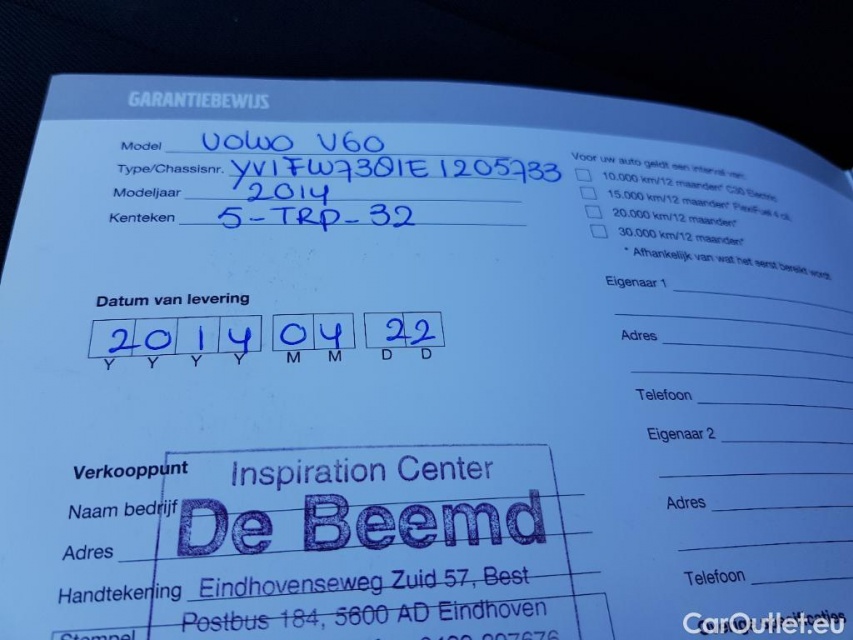 GARANTIEBEWIJS
Model VOLVO V60
Type/Chassisnr. YV1FW7301E1205733
Modeljaar 2014
Kenteken 5-TRP-32
Datum van levering
2014 04 22
Y Y Y Y M M D D
Verkooppunt
Inspiration Center
Naam bedrijf
De Beemd
Adres
Handtekening Eindhovenseweg Zuid 57, Best
Postbus 184, 5600 AD Eindhoven
Stempel
Voor uw auto geldt een interval van:
10.000 km/12 maanden* C30 Electric
15.000 km/12 maanden* FlexiFuel 4 cil.
20.000 km/12 maanden*
30.000 km/12 maanden*
* Afhankelijk van wat het eerst bereikt wordt
Eigenaar 1
Adres
Telefoon
Eigenaar 2
Adres
Telefoon
CarOutlet.eu